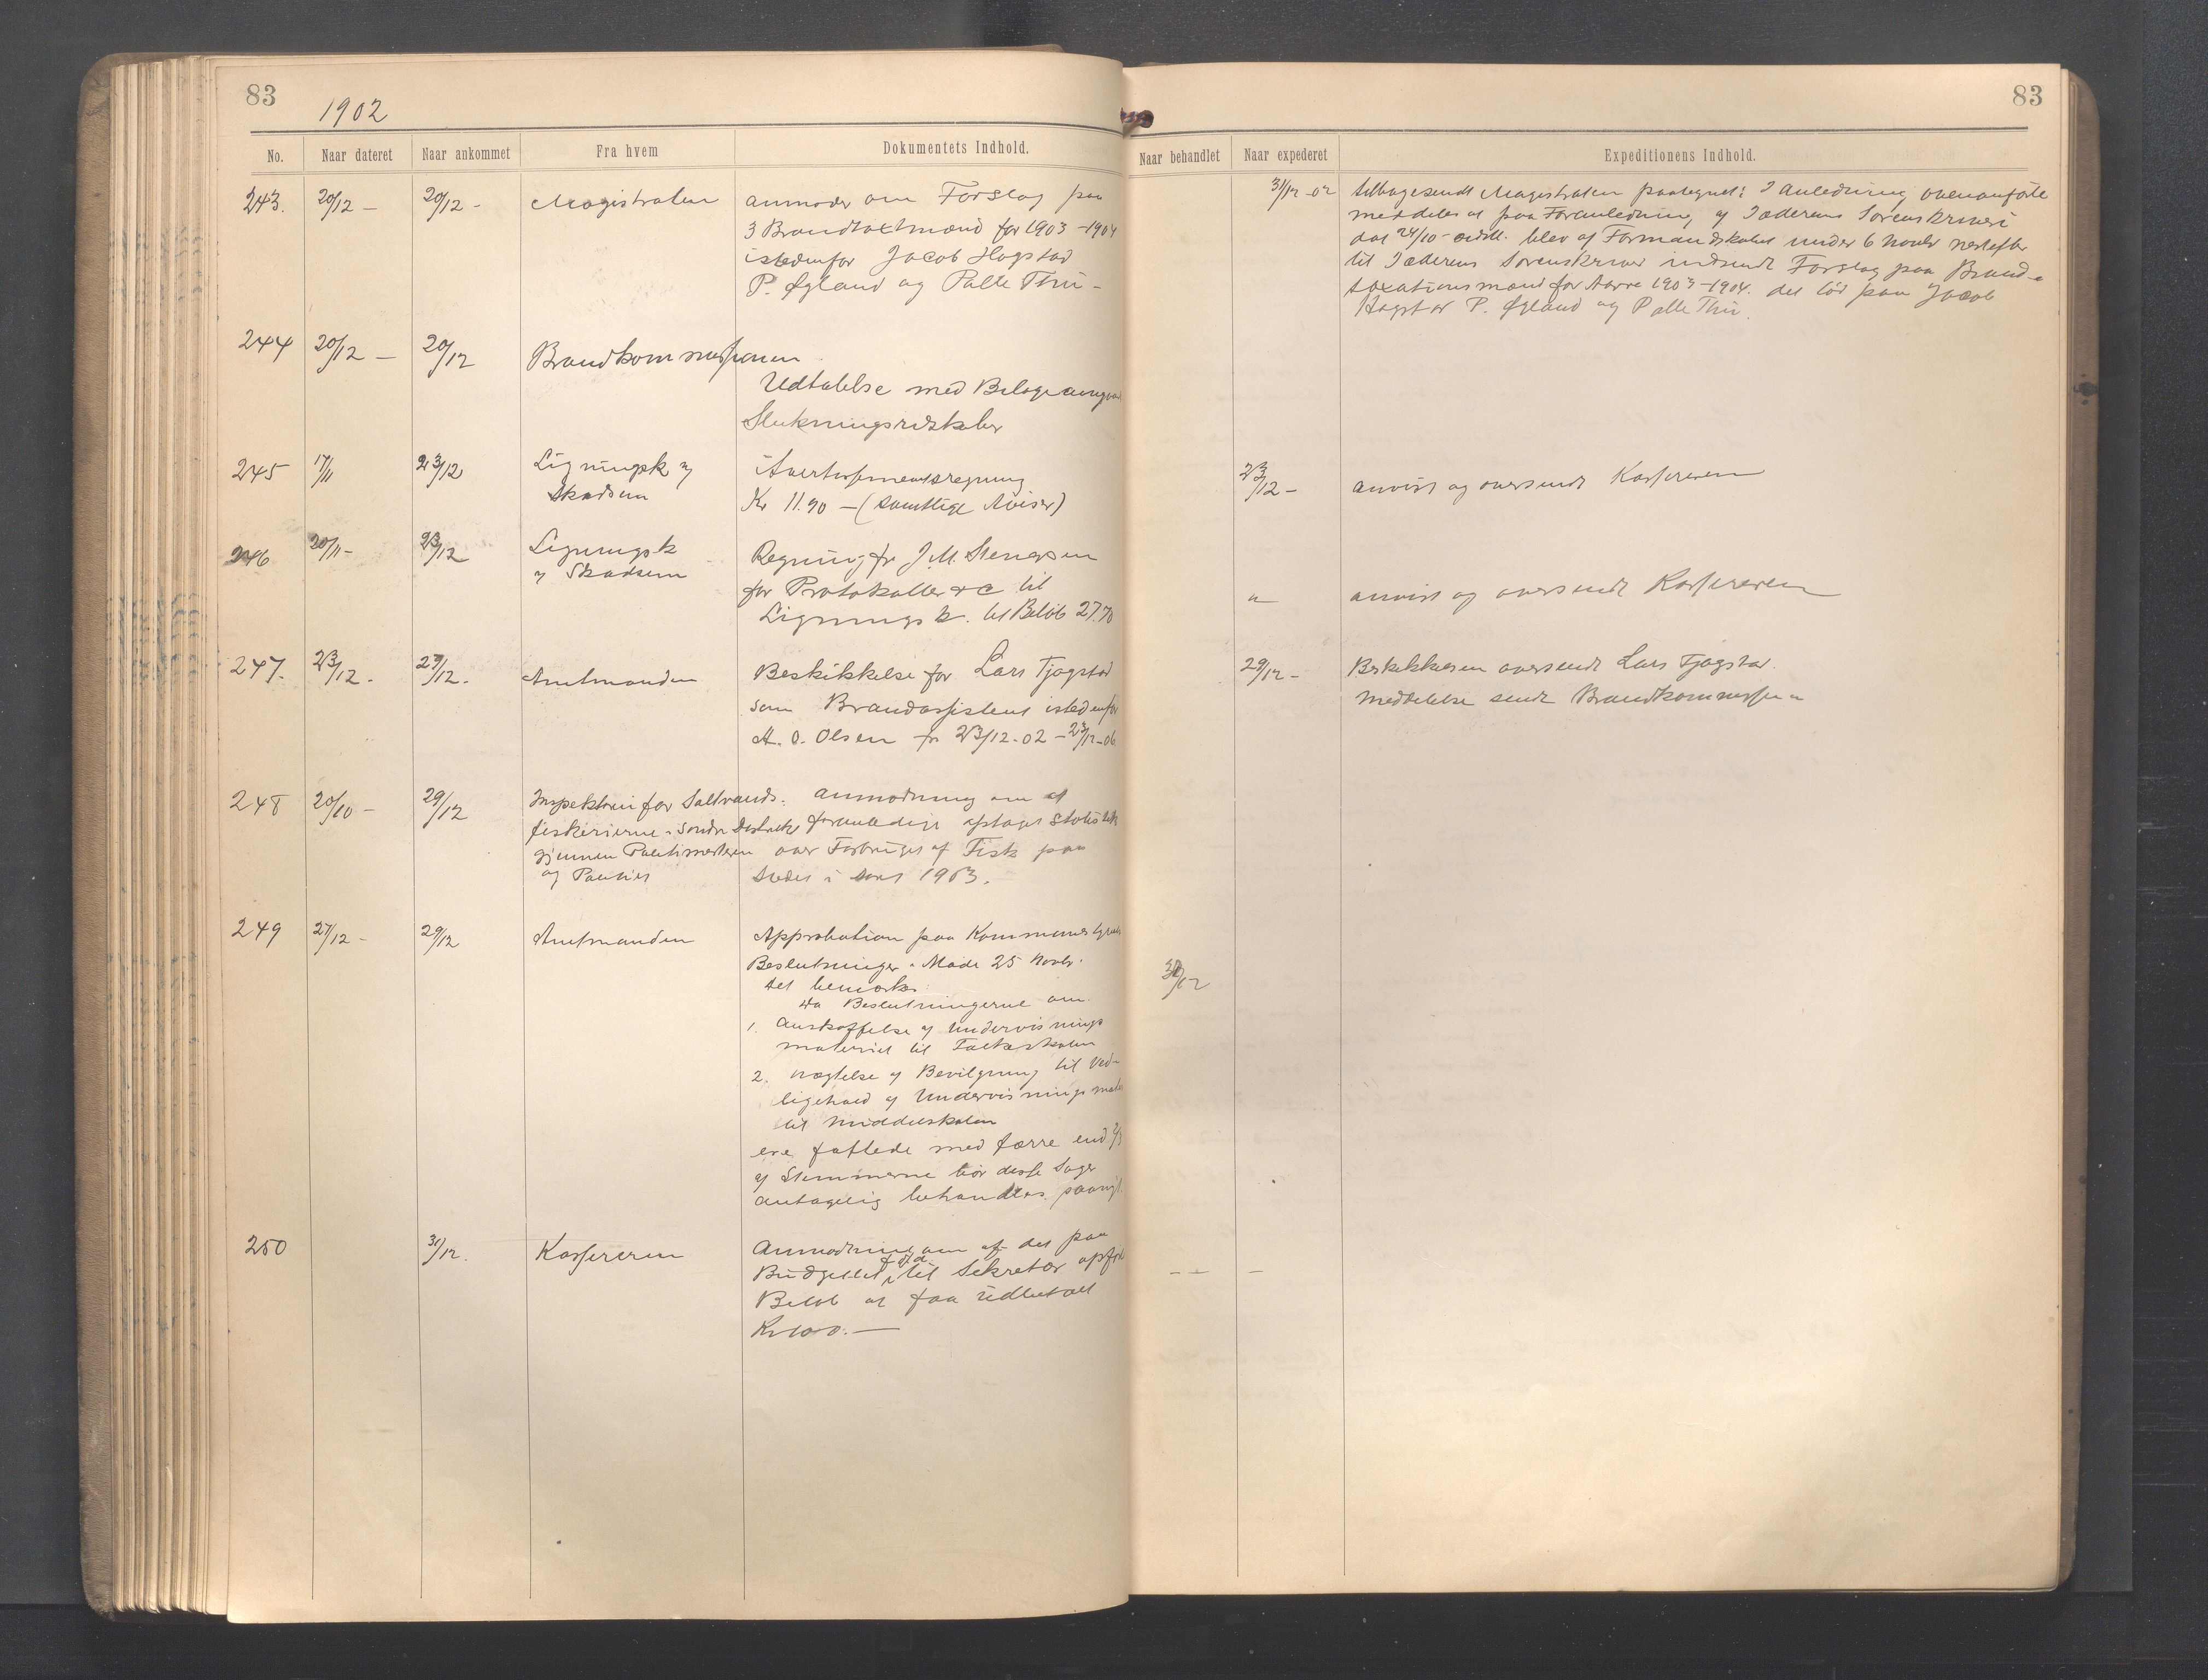 83
1902
No. Naar dateret Naar ankommet Fra hvem Dokumentets Indhold.
243. 20/12 – 20/12 – Magistraten anmoder om Forslag paa
3 Brandtaxtmænd for 1903–1904
istedenfor Jacob Hogstad
P. Øgland og Palle Thu –
244 20/12 – 20/12 Brandkommissionen
Udtalelse med Bilage
Slukningsredskaber
245 17/11 23/12 Ligningsk og Avertissementsregning
Skadsem Kr 11.90 – (samtlige Aviser)
246 20/11 – 23/12 Ligningsk Regning fra J. M. Stenersen
og Skadsem for Protokoller &c til
Ligningsk. til Beløb 27.70
247. 23/12. 27/12. Amtmanden Beskikkelse for Lars Tjøgstad
som Brandassistent istedenfor
A. O. Olsen fr 23/12-02 – 23/12-06
248 20/10 – 29/12 Inspektøren for Saltvands- Anmodning om at
fiskerierne i søndre Distrikt foranledige optaget Statistik
gjennem Politimesteren over Forbruget af Fisk paa
og Stedet i 1903.
249 27/12 – 29/12 Amtmanden Approbation paa Kommunestyrets
Beslutninger i Møde 25 Novbr.
det bemærkes
da Beslutningerne om
1. Anskaffelse af Undervisnings
materiel til Folkeskolen
2. nægtelse af Bevilgning til Ved-
ligehold af Undervisningsmate
til Middelskolen
ere fattede med færre end 2/3
af Stemmerne bør disse Sager
antagelig behandles paany
250 31/12. Kassereren Anmodning om af det paa
Budgettet til Sekretær opført
Beløb at faa udbetalt
Kr 100. –
83
Naar behandlet Naar expederet Expeditionens Indhold.
31/12-02 tilbagesendt Magistraten paategnet: I Anledning ovenanførte
meddeles at paa Foranledning af Jæderens Sorenskriveri
dat 24/10 sidstl. blev af Formandskabet under 6 Novbr næstefter
til Jæderens Sorenskriver indsendt Forslag paa Brand-
taxationsmænd for Aarene 1903–1904. det lød paa Jacob
Hogstad P. Øgland og Palle Thu.
23/12 – anvist og oversendt Kassereren
" anvist og oversendt Kassereren
29/12 – Beskikkelsen oversendt Lars Tjøgstad.
meddelelse sendt Brandkommissionen